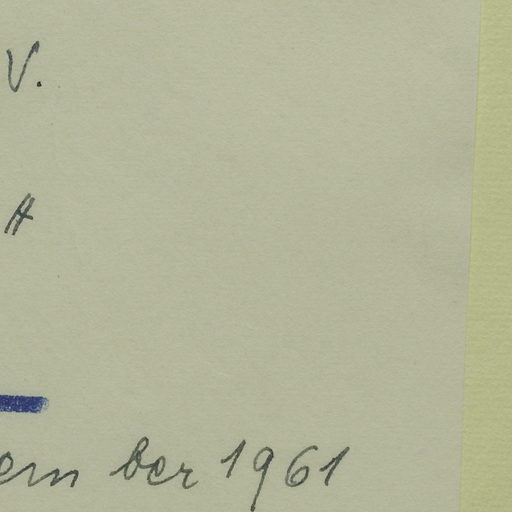 V.
H
em ber 1961